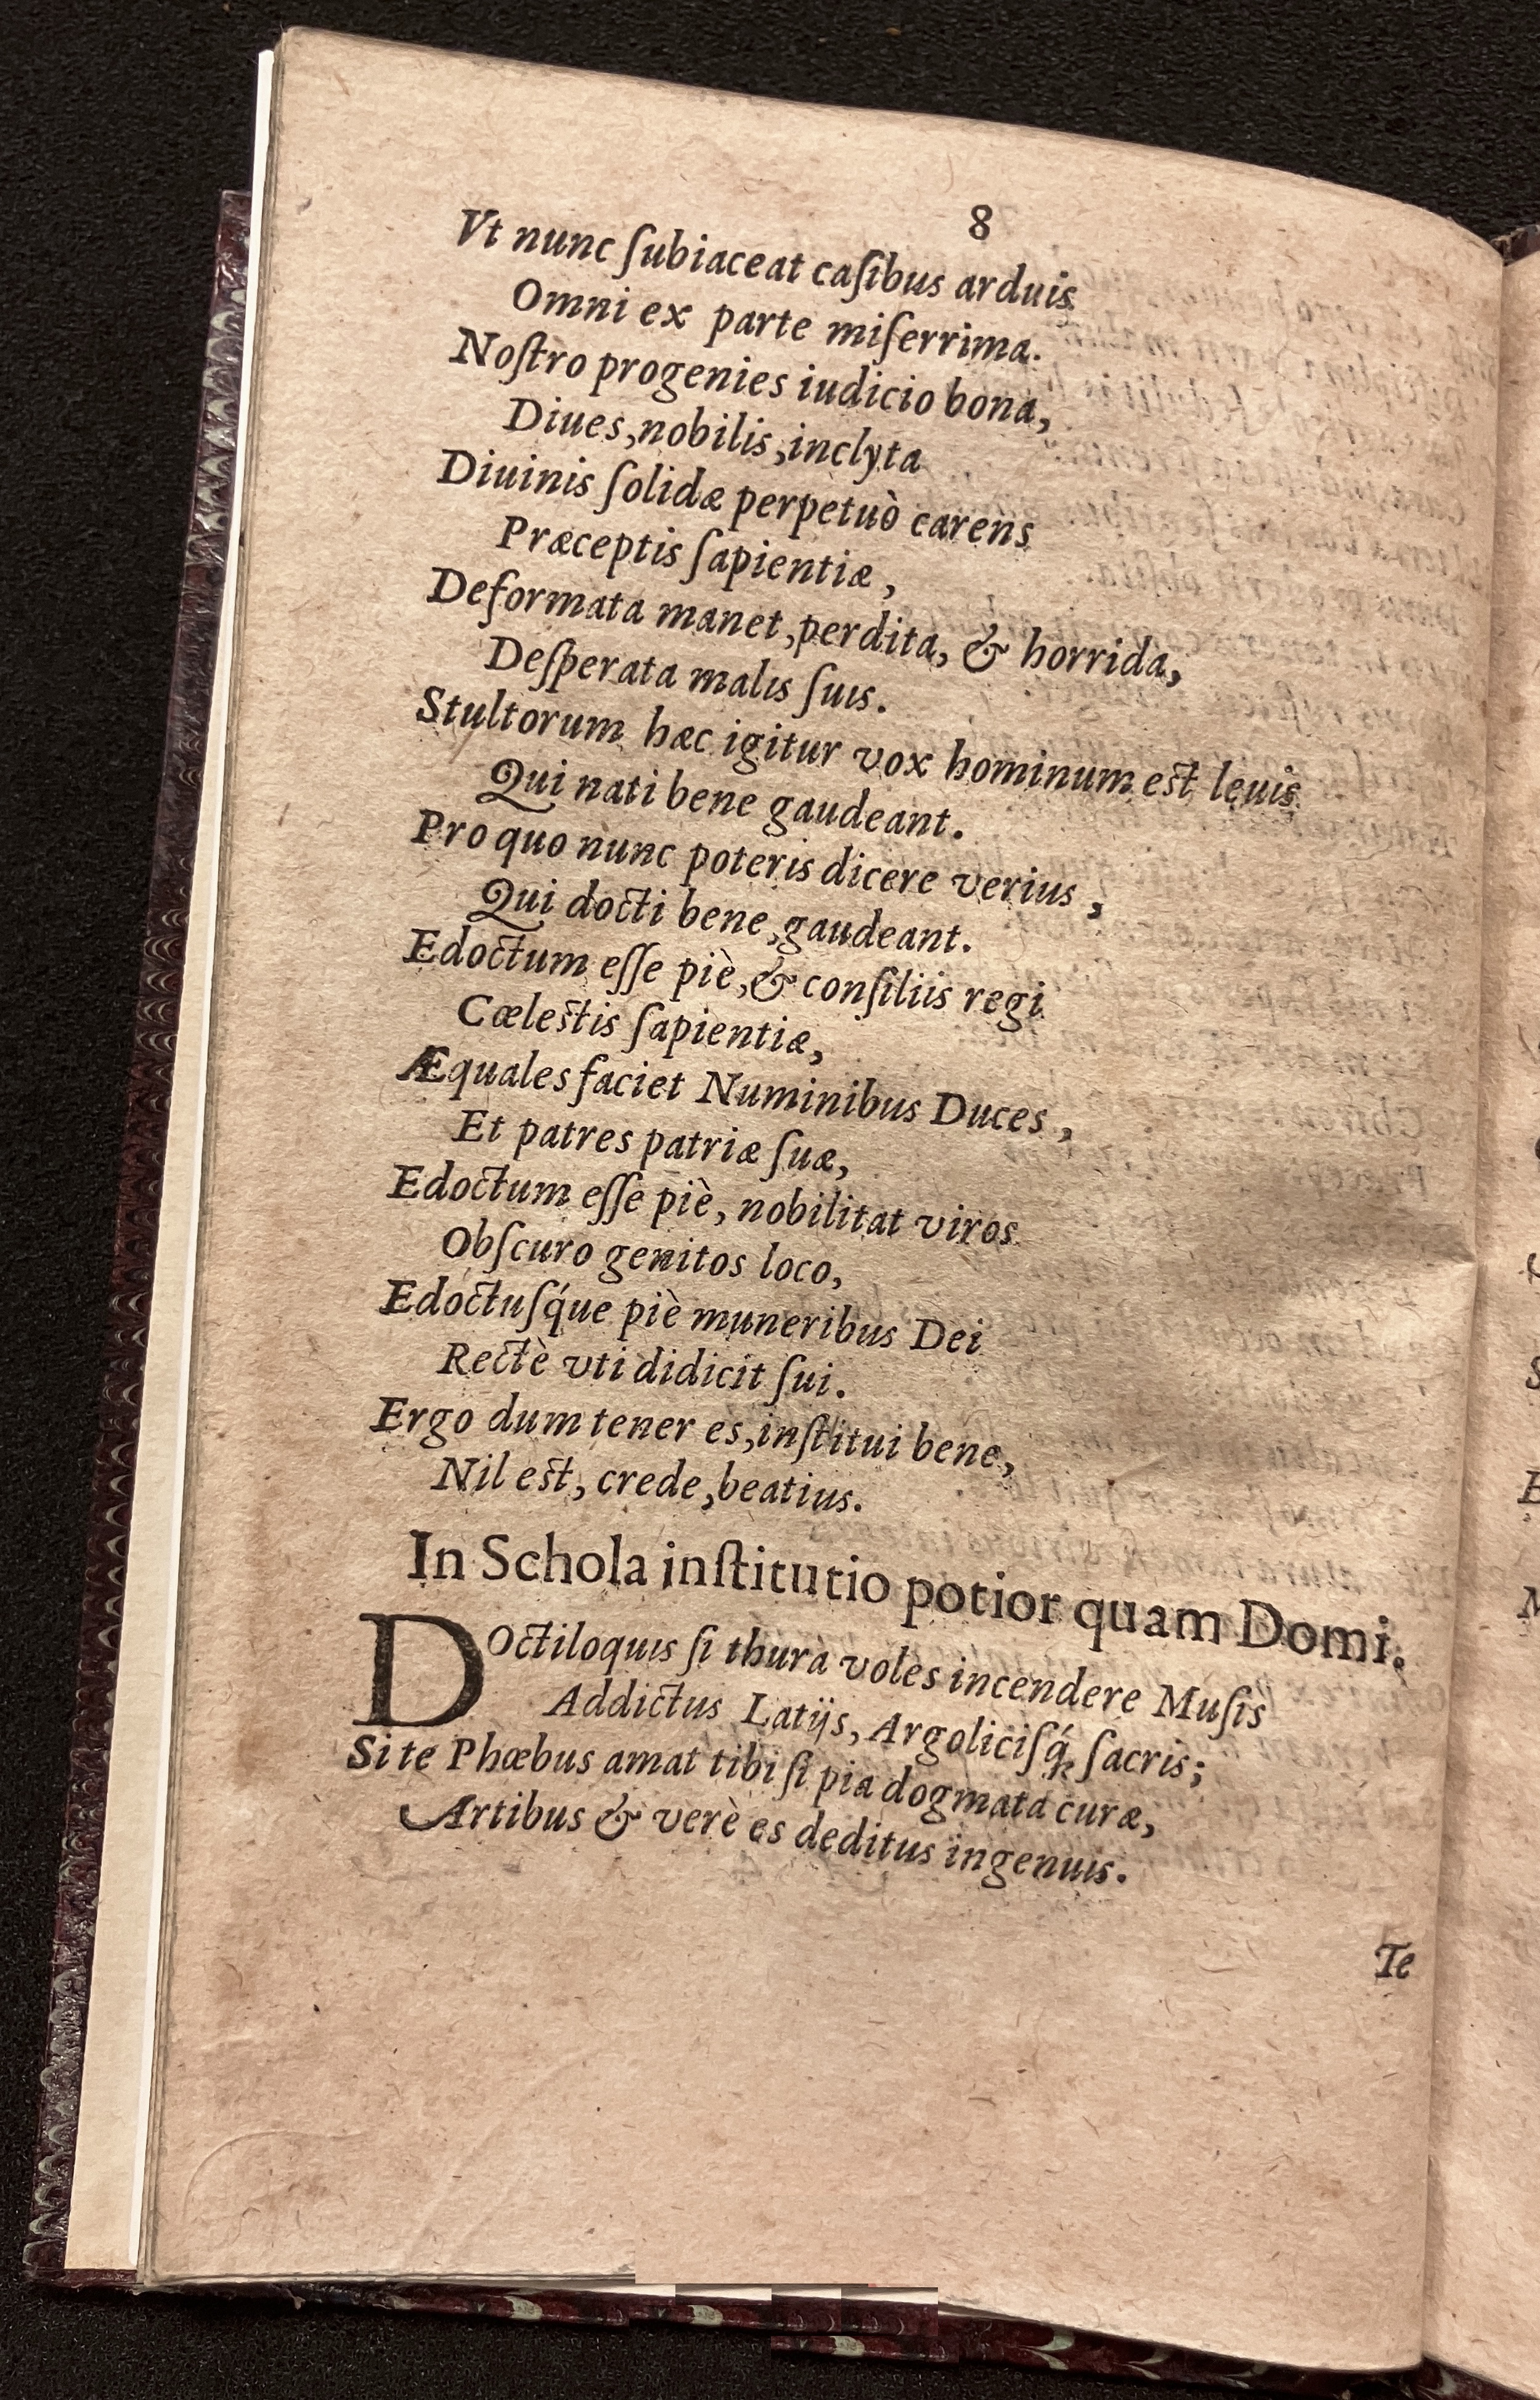 8
Vt nunc ſubiaceat caſibus arduis
Omni ex parte miſerrima.
Noſtro progenies iudicio bona,
Diues, nobilis, inclyta
Diuinis ſolidæ perpetuò carens
Præceptis ſapientiæ,
Deformata manet, perdita, & horrida,
Deſperata malis ſuis.
Stultorum hæc igitur vox hominum eſt leuis
Qui nati bene gaudeant.
Pro quo nunc poteris dicere verius,
Qui docti bene, gaudeant.
Edoctum eſſe piè, & conſiliis regi
Cæleſtis ſapientiæ,
Æquales faciet Numinibus Duces,
Et patres patriæ ſuæ,
Edoctum eſſe piè, nobilitat viros
Obſcuro genitos loco,
Edoctuſq́ue piè muneribus Dei
Rectè vti didicit ſui.
Ergo dum tener es, inſtitui bene,
Nil eſt, crede, beatius.
In Schola inſtitutio potior quam Domi.
DOctiloquis ſi thura voles incendere Muſis
Addictus Latijs, Argoliciſq́ꝫ ſacris;
Si te Phœbus amat tibi ſi pia dogmata curæ,
Artibus & verè es deditus ingenuis.
Te